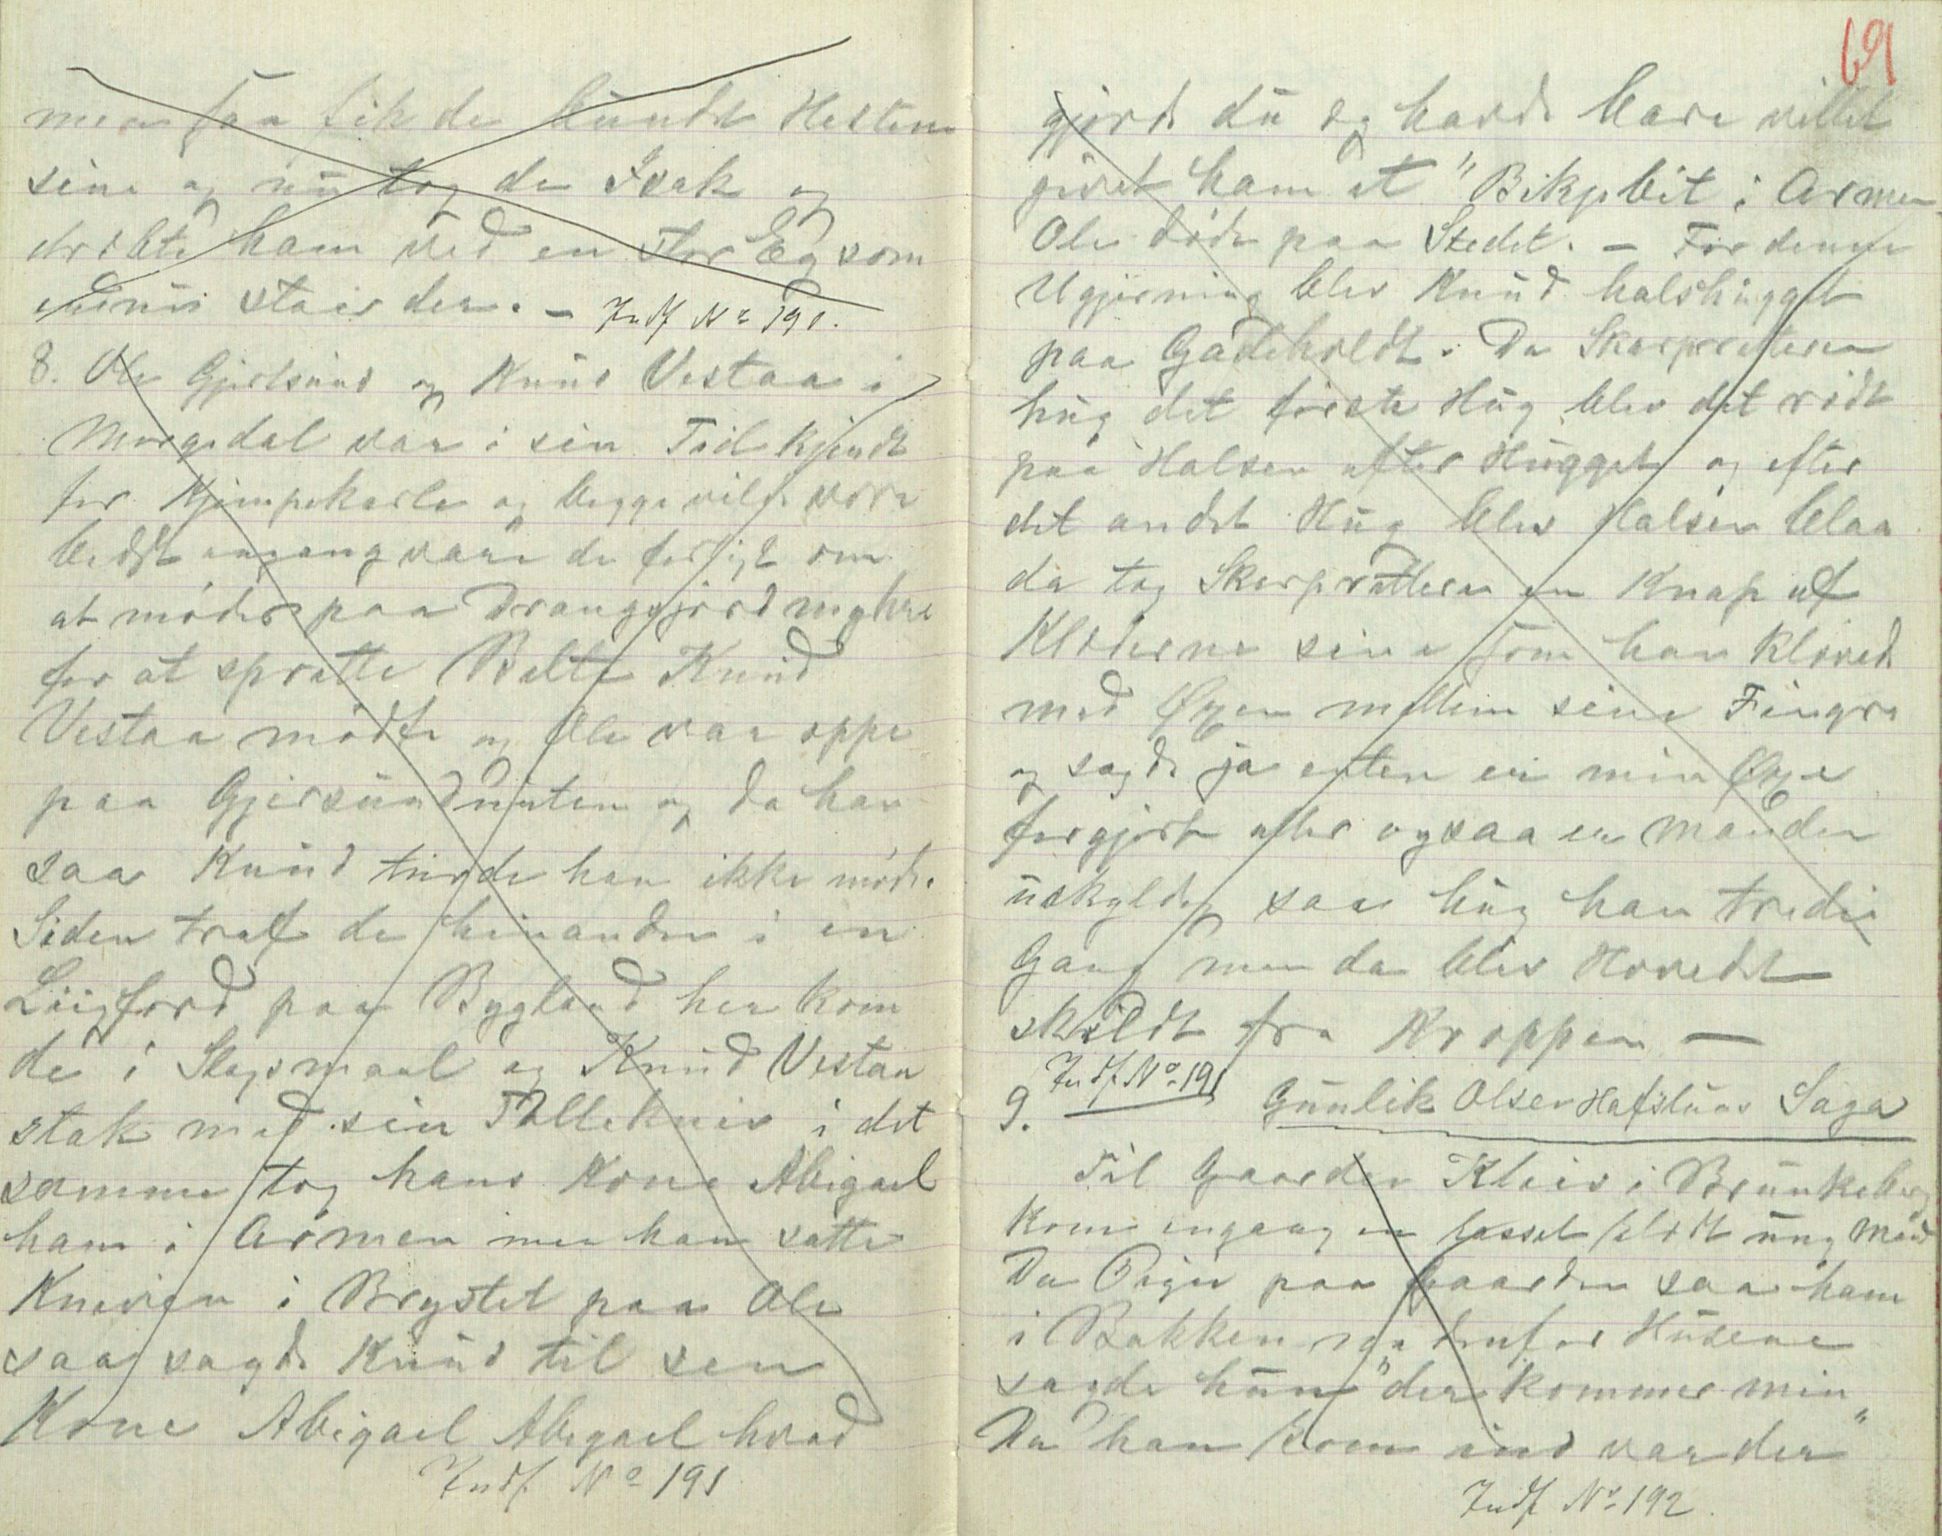 men saa fik de kundt Hestene
sine og nu tog de Isak og
dræbte ham ved en stor Eg som
endnu staar der. — Indf No 190.
8. Ole Gjersund og Knud Vestaa i
Morgedal var i sin Tid kjendt
for Kjæmpekarle og begge vilde være
bedst engang vare de forligt om
at møder paa Drangsjordmyhre
for at sprætte Belte Knud
Vestaa mødte og Ole var oppe
paa Gjersundnuten og da han
saa Knud turde han ikke møde.
Siden traf de hinanden i en
Liigfærd paa Bygland her kom
de i Slagsmaal og Knud Vestaa
stak med sin Tollekniv i det
samme tog hans Kone Abigael
ham i Armen men han satte
Kneven i Brystet paa Ole
saa sagde Knud til sen
Kone Abigael Abigael hvad
Indf No 191
691
gjorde du eg havde bare villet
givet ham et "Bikjebit i Armen
Ole døde paa Stedet. — For denne
Ugjerning blev Knud halshugget
paa Gadeholdt. Da Skarpretteren
hug det første Hug blev det rødt
paa Halsen efter Hugget og efter
det andet Hug blev Halsen blaa
da tog Skarprætteren en Knap af
Klæderne sine som han kløved
med Øxen mellem sine Fingre
og sagde ja enten er min Øxe
forgjort eller ogsaa er Manden
uskyldig saa hug han tredie
Gang men da blev Hovedet
skildt fra Kroppen —
Indf. No. 191
9. Gunlik Olsen Hafsluns Saga
Til Gaarden Kleiv i Brunkeberg
kom engang en lasset klædt ung Mand
Da Piger paa Gaarden saa ham
i Bakken nedenfor Husene
sagde hun "der kommer min"
Da han kom ind var der
Indf No. 192.